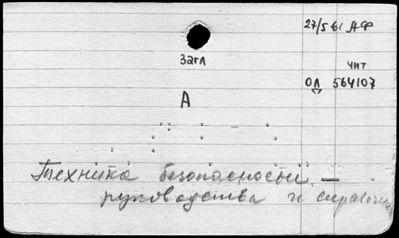 27/5 61 АФ
Загл
чит
ОЛ 564107
А
Техника безопасности —
руководства и справочн